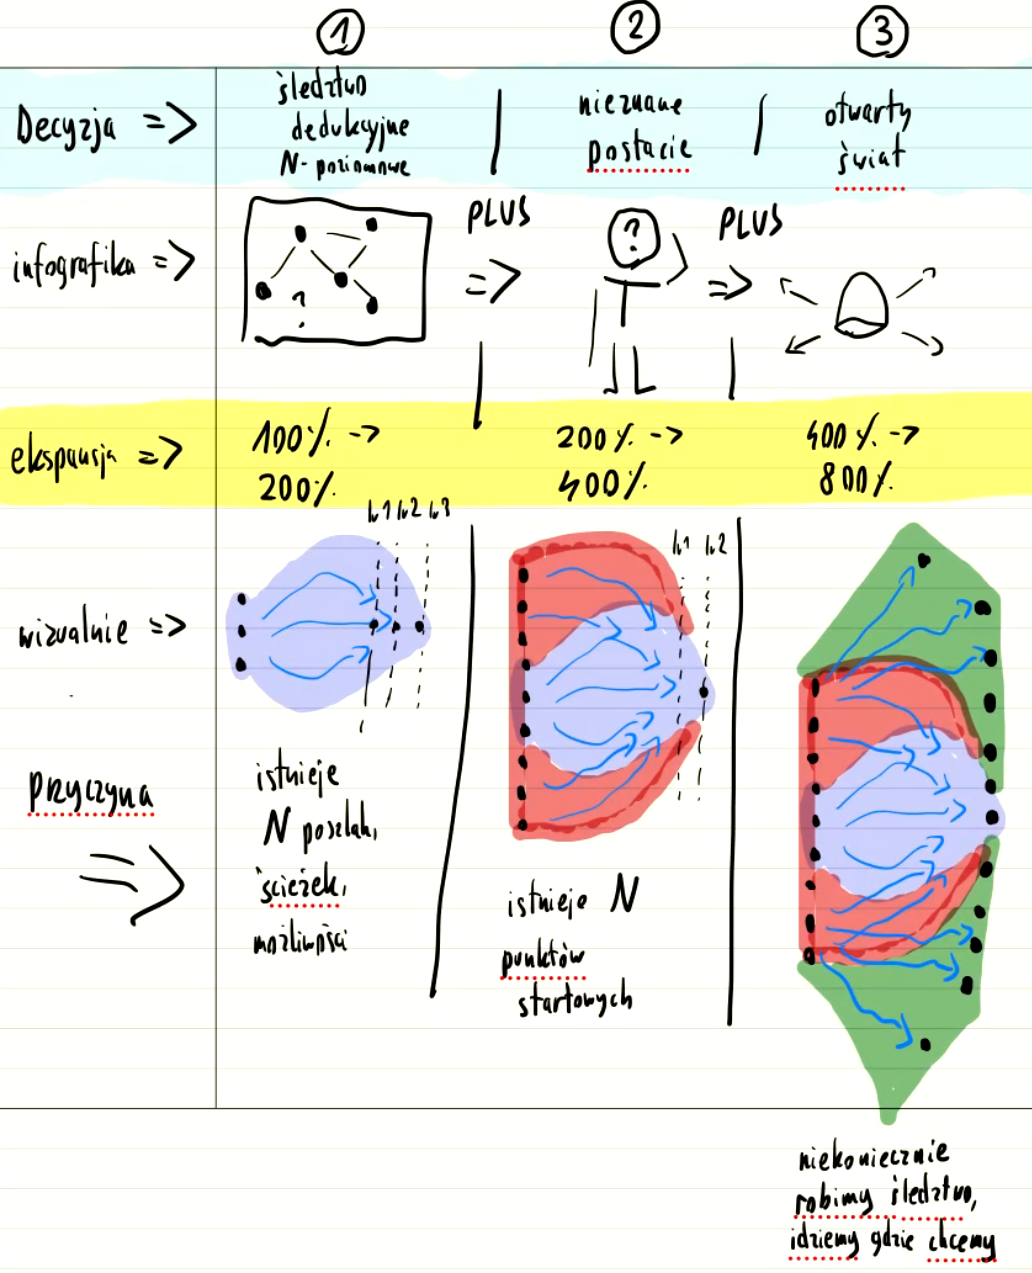 1 2 3
Decyzja => śledztwo | nieznane | otwarty
dedukcyjne postacie świat
N-poziomowe
infografika => PLUS ? PLUS
? => =>
ekspansja => 100% -> 200% -> 400% ->
200% 400% 800%
lv1 lv2 lv3
lv1 lv2
wizualnie =>
przyczyna
=>
istnieje
N poszlak,
ścieżek,
możliwości
istnieje N
punktów
startowych
niekoniecznie
robimy śledztwo,
idziemy gdzie chcemy